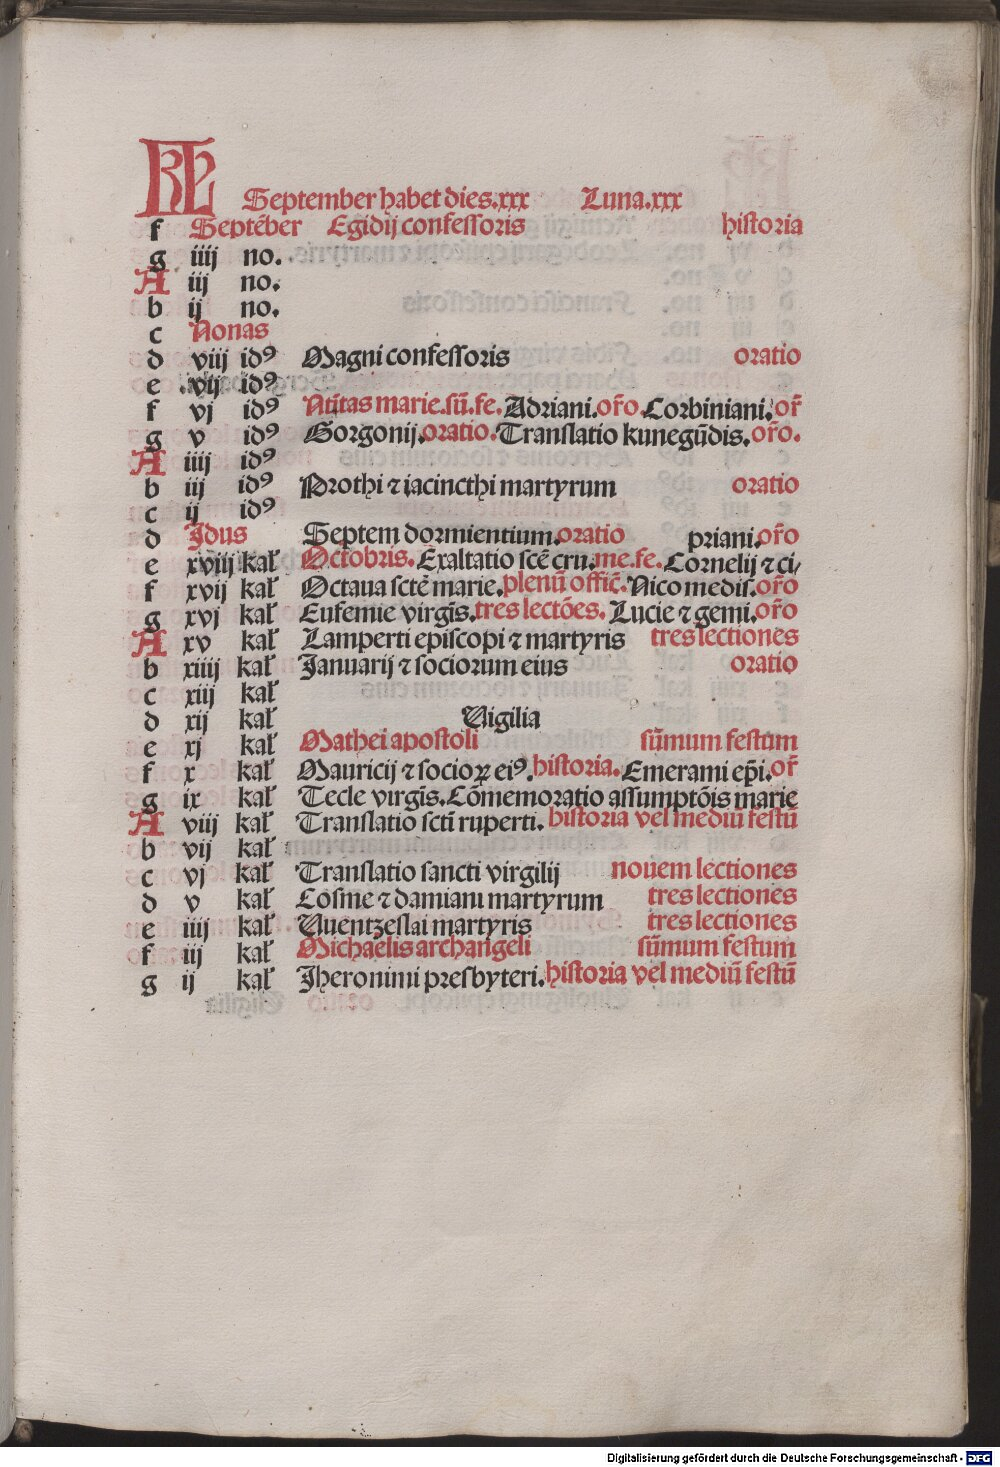 KL September habet dies.xxx Luna.xxx
f Septēber Egidij confessoris historia
g iiij no.
A iij no.
b ij no.
c Nonas
d viij idꝰ Magni confessoris oratio
e vij idꝰ
f vj idꝰ Nūtas marie.sū.fe. Adriani.or̄o.Corbiniani.or̄
g v idꝰ Gorgonij.oratio.Translatio kunegūdis.or̄o.
A iiij idꝰ
b iij idꝰ Prothi ⁊ iacincthi martyrum oratio
c ij idꝰ
d Jdus Septem dormientium.oratio priani.or̄o
e xviij kał Octobris. Exaltatio scē cru.me.fe. Cornelij ⁊ ci/
f xvij kał Octaua sctē marie.plenū offic̄.Nicomedis.or̄o
g xvj kał Eufemie virgīs.tres lectōes. Lucie ⁊ gemi.or̄o
A xv kał Lamperti episcopi ⁊ martyris tres lectiones
b xiiij kał Januarij ⁊ sociorum eius oratio
c xiij kał
d xij kał Vigilia
e xj kał Mathei apostoli sūmum festum
f x kał Mauricij ⁊ socioꝝ eiꝰ.historia. Emerami ep̄i.or̄
g ix kał Tecle virgīs.Cōmemoratio assumptōis marie
A viij kał Translatio sctī ruperti. historia vel mediū festū
b vij kał
c vj kał Translatio sancti virgilij nouem lectiones
d v kał Cosme ⁊ damiani martyrum tres lectiones
e iiij kał Wentzeslai martyris tres lectiones
f iij kał Michaelis archangeli sūmum festum
g ij kał Jheronimi presbyteri.historia vel mediū festū
Digitalisierung gefördert durch die Deutsche Forschungsgemeinschaft - DFG